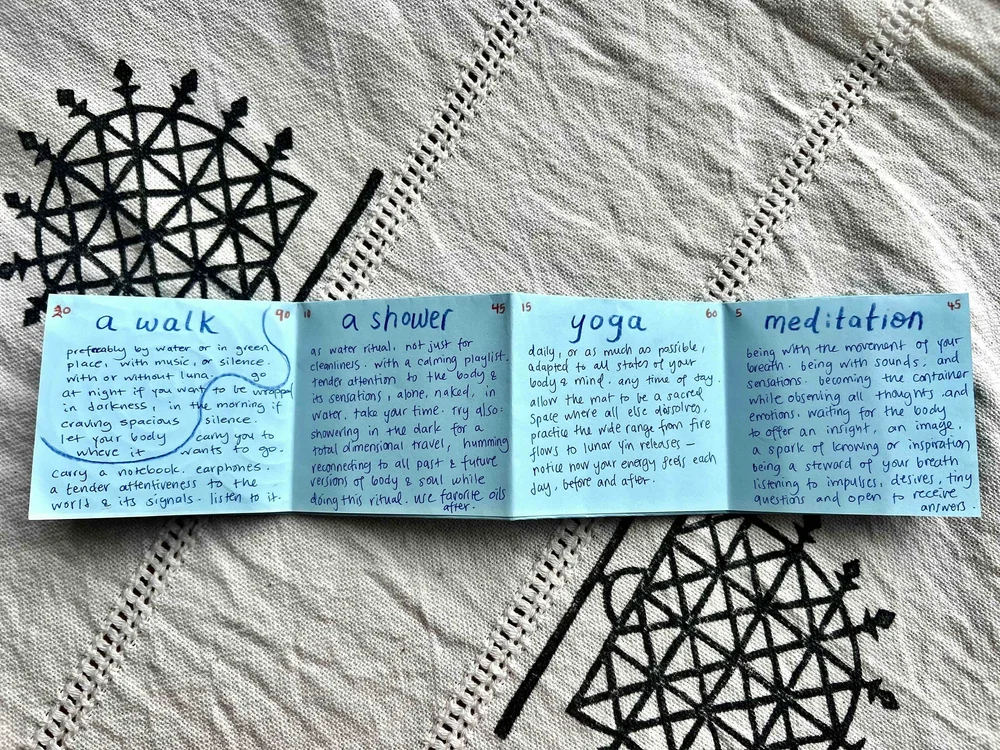 20 90
a walk
preferably by water or in green
place, with music, or silence.
with or without luna. go
at night if you want to be wrapped
in darkness, in the morning if
craving spacious silence.
let your body carry you to
where it wants to go.
carry a notebook. earphones.
a tender attentiveness to the
world & its signals. listen to it.
10 45
a shower
as water ritual, not just for
cleanliness. with a calming playlist.
tender attention to the body &
its sensations, alone, naked, in
water. take your time. try also:
showering in the dark for a
total dimensional travel, humming
reconnecting to all past & future
versions of body & soul while
doing this ritual. use favorite oils
after.
15 60
yoga
daily, or as much as possible,
adapted to all states of your
body & mind. any time of day.
allow the mat to be a sacred
space where all else dissolves,
practice the wide range from fire
flows to lunar yin releases —
notice how your energy feels each
day, before and after.
5 45
meditation
being with the movement of your
breath. being with sounds, and
sensations. becoming the container
while observing all thoughts and
emotions. waiting for the body
to offer an insight, an image,
a spark of knowing or inspiration
being a steward of your breath.
listening to impulses, desires, tiny
questions and open to receive
answers.